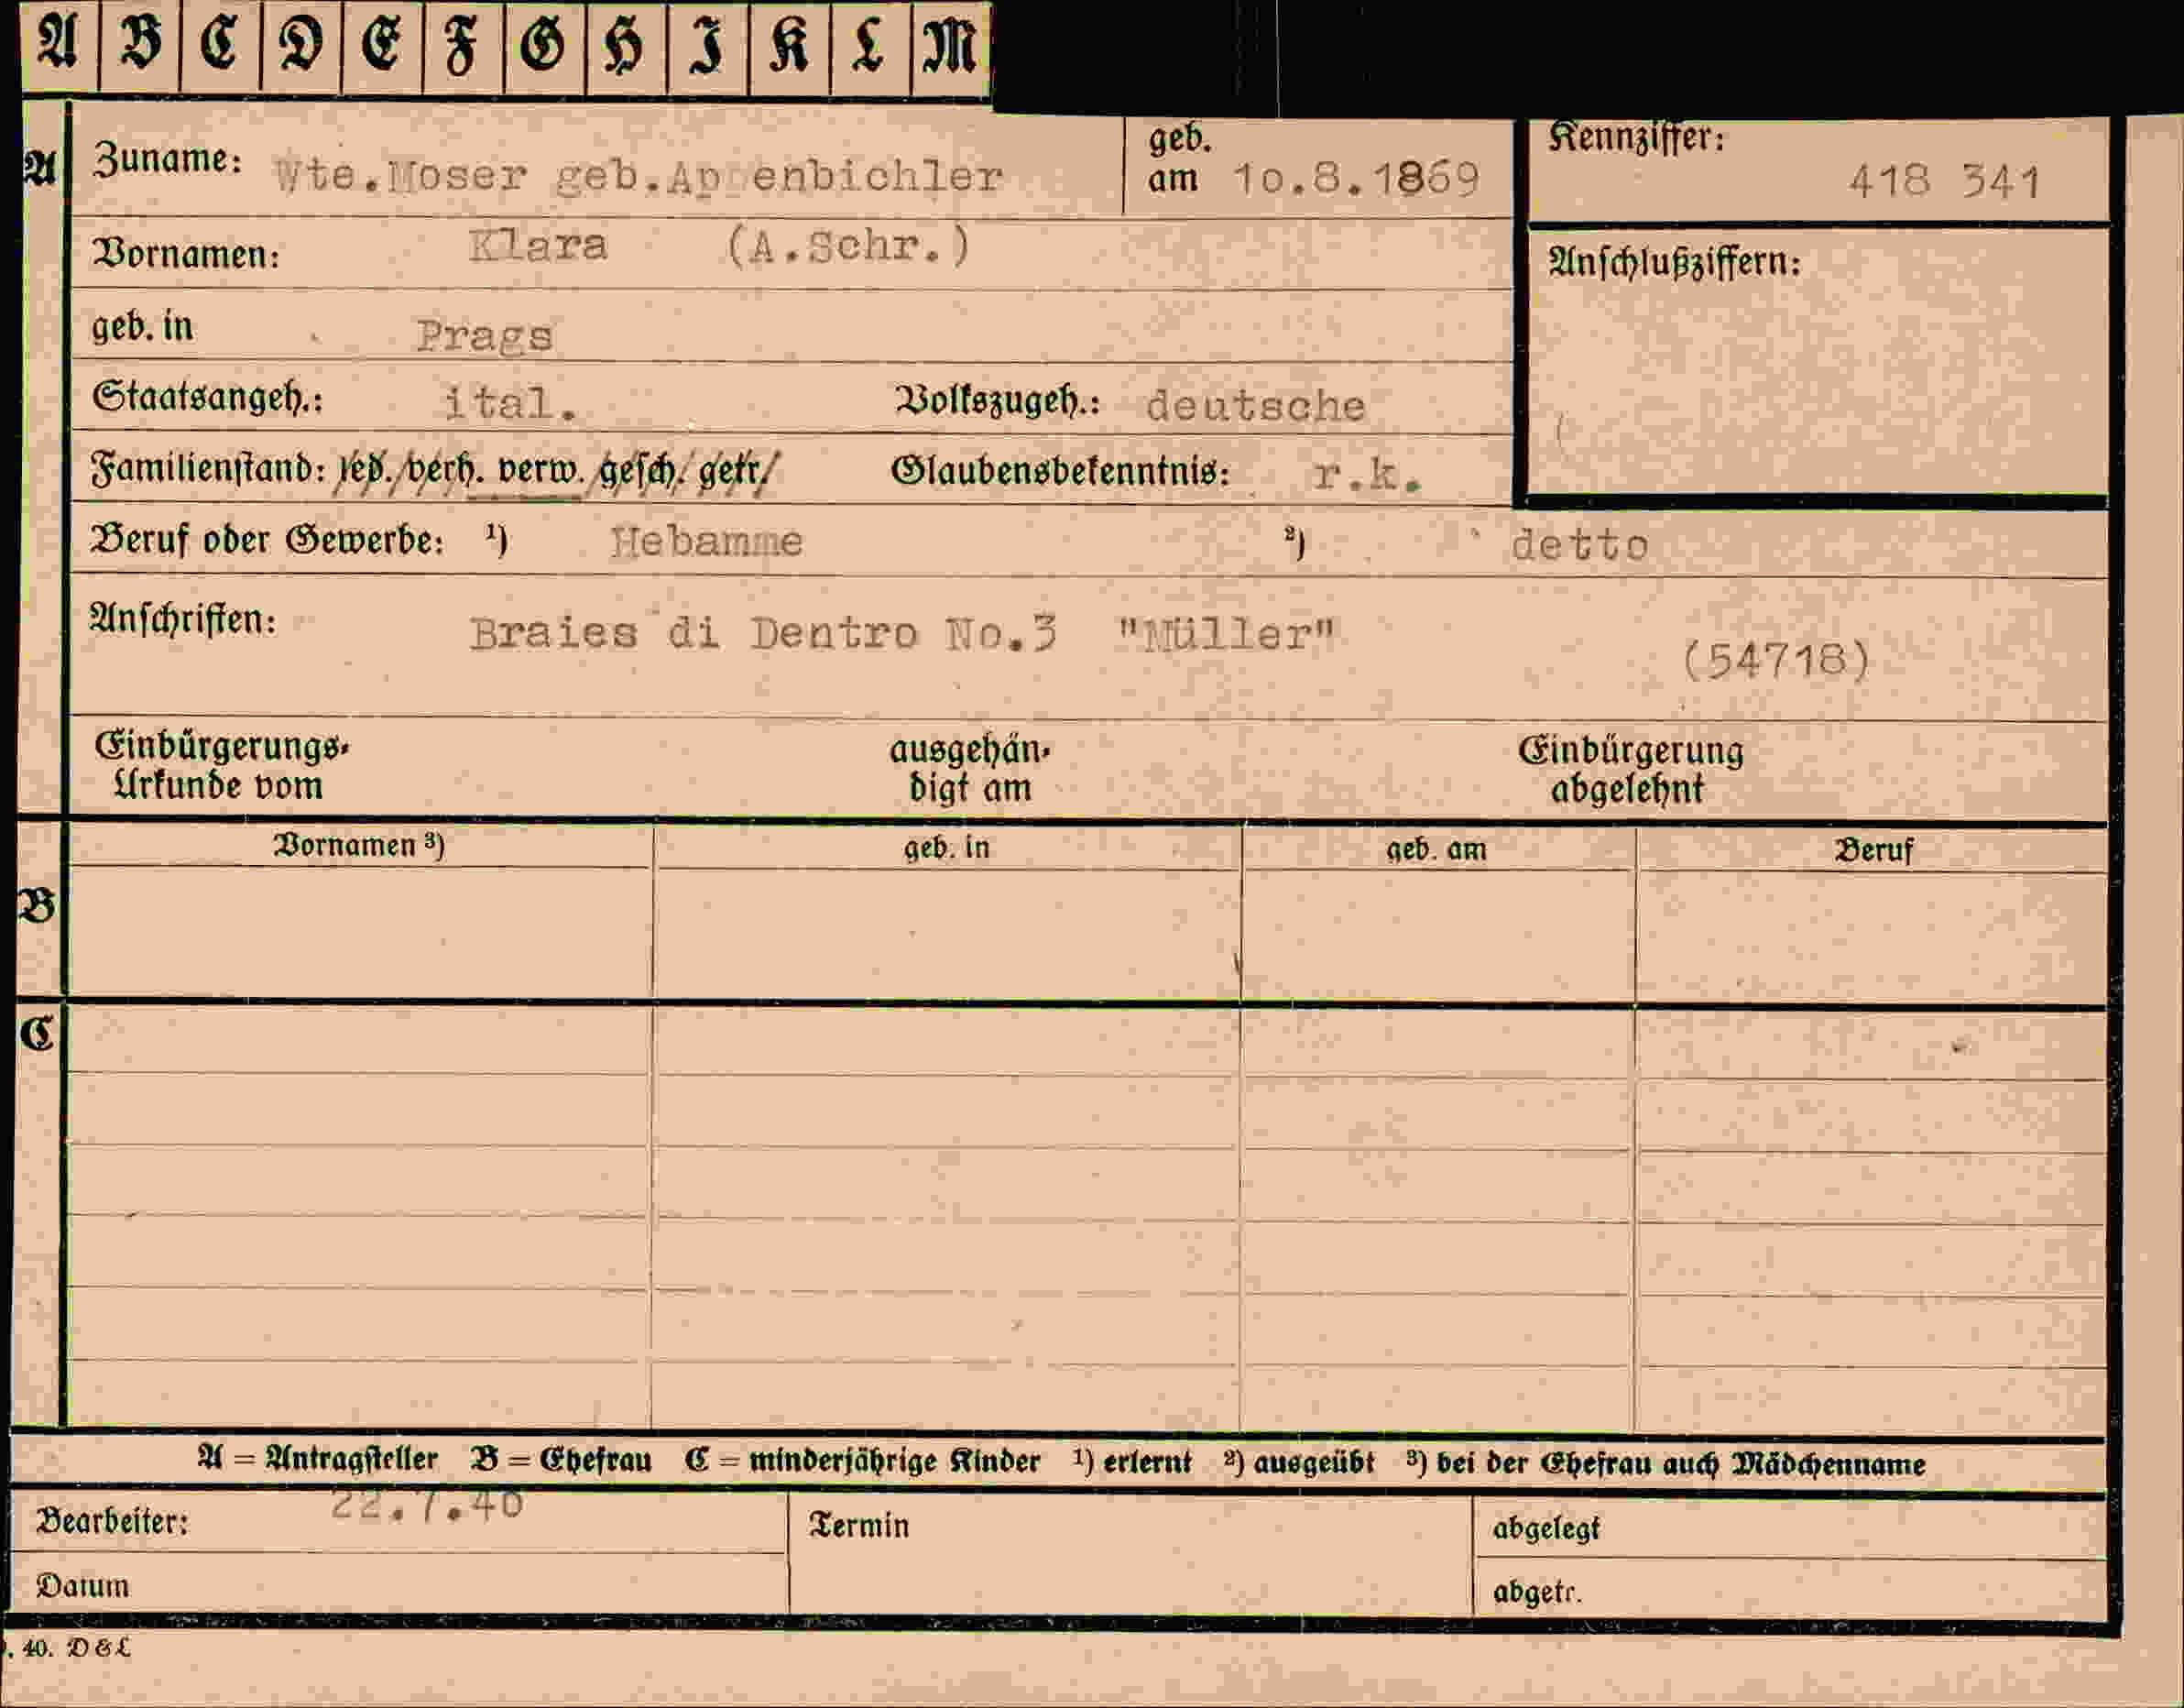 A B C D E F G H I K L M
A
Zuname: Wte.Moser geb.Ap enbichler
geb. am 10.8.1869
Kennziffer: 418 341
Vornamen: Klara (A.Schr.)
Anschlußziffern:
geb. in Prags
Staatsangeh.: ital. Volkszugeh.: deutsche
Familienstand: led./verh. verw. gesch. getr. Glaubensbekenntnis: r.k.
Beruf oder Gewerbe: ¹) Hebamme ²) detto
Anschriften: Braies di Dentro No.3 "Müller"
(54718)
Einbürgerungs- ausgehän- Einbürgerung
Urkunde vom digt am abgelehnt
Vornamen ³) geb. in geb. am Beruf
B
C
A = Antragsteller B = Ehefrau C = minderjährige Kinder ¹) erlernt ²) ausgeübt ³) bei der Ehefrau auch Mädchenname
Bearbeiter: 22.7.40 Termin abgelegt
Datum abgetr.
. 40. D & L